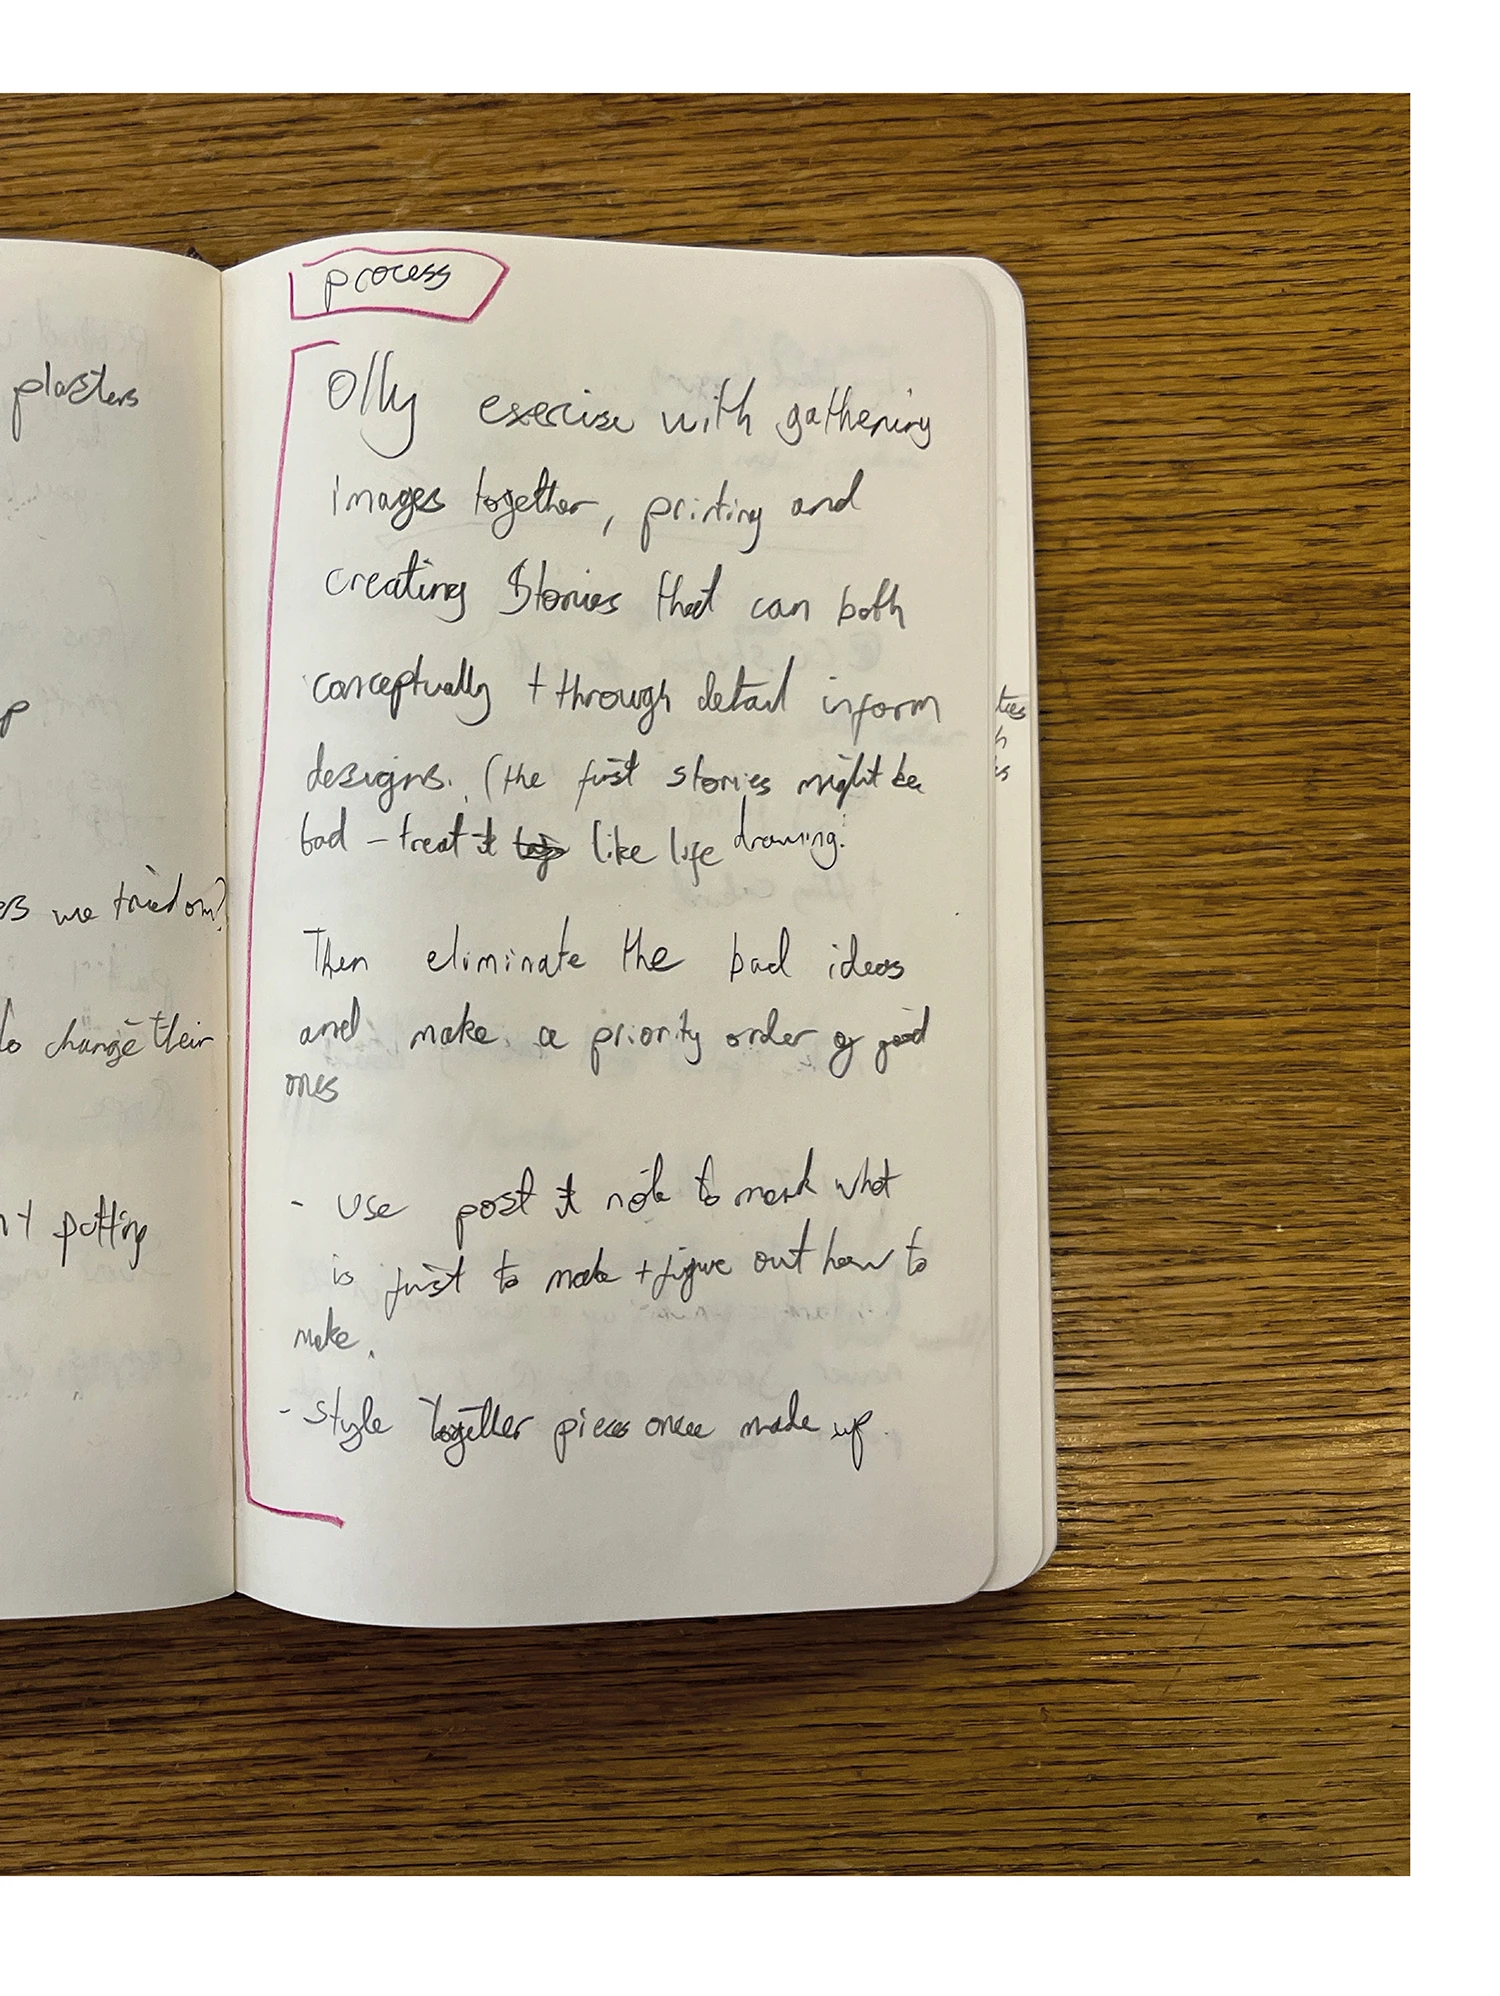 plasters
p
ers we tried on?
to change their
putting
process
Olly exercise with gathering
images together, printing and
creating Stories that can both
conceptually + through detail inform
designs. (the first stories might be
bad - treat it like life drawing.
Then eliminate the bad ideas
and make a priority order of good
ones
- use post it note to mark what
is just to make + figure out how to
make.
- Style together pieces once made up.
ties